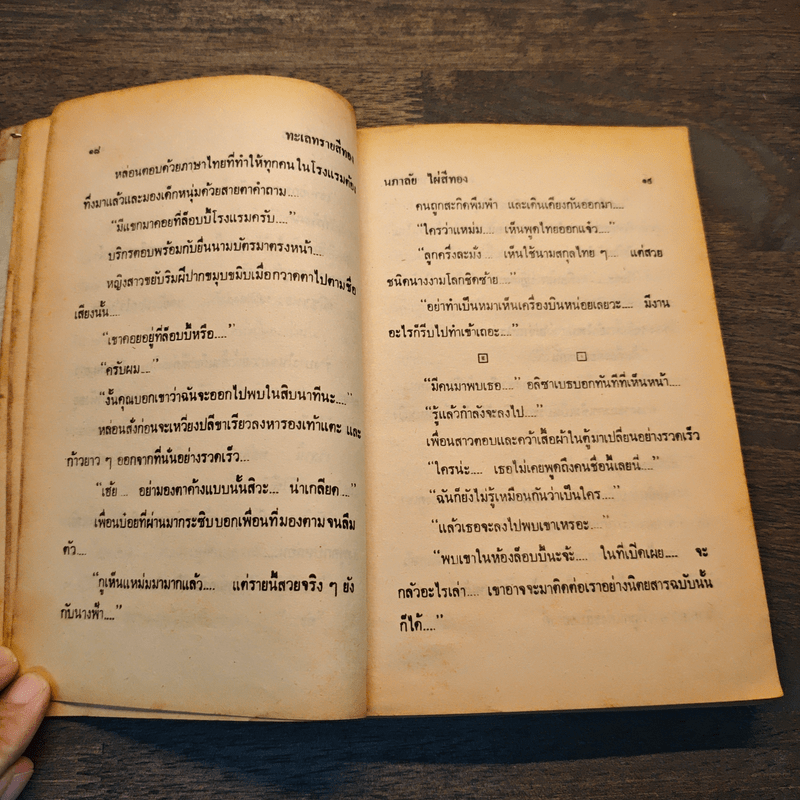 ๑๘ ทะเลทรายสีทอง
หล่อนตอบด้วยภาษาไทยที่ทำให้ทุกคนในโรงแรมต้อง
ทึ่งมาแล้วและมองเด็กหนุ่มด้วยสายตาคำถาม....
“มีแขกมาคอยที่ล็อบบี้โรงแรมครับ....”
บริกรตอบพร้อมกับยื่นนามบัตรมาตรงหน้า....
หญิงสาวขยับริมฝีปากขมุบขมิบเมื่อกวาดตาไปตามชื่อ
เสียงนั้น....
“เขาคอยอยู่ที่ล็อบบี้หรือ....”
“ครับผม....”
“งั้นคุณบอกเขาว่าฉันจะออกไปพบในสิบนาทีนะ....”
หล่อนสั่งก่อนจะเหวี่ยงปลีขาเรียวลงหารองเท้าแตะ และ
ก้าวยาว ๆ ออกจากที่นั่นอย่างรวดเร็ว...
“เฮ้ย ... อย่ามองตาค้างแบบนั้นสิวะ... น่าเกลียด ...”
เพื่อนบ๋อยที่ผ่านมากระซิบบอกเพื่อนที่มองตามจนลืม
ตัว....
“กูเห็นแหม่มมามากแล้ว.... แต่รายนี้สวยจริง ๆ ยัง
กับนางฟ้า....”
นภาลัย ไผ่สีทอง ๑๙
คนถูกสะกิดพึมพำ และเดินเคียงกันออกมา....
“ใครว่าแหม่ม.... เห็นพูดไทยออกแจ๋ว....”
“ลูกครึ่งละมั้ง ... เห็นใช้นามสกุลไทย ๆ ... แต่สวย
ชนิดนางงามโลกชิดซ้าย....”
“อย่าทำเป็นหมาเห็นเครื่องบินหน่อยเลยวะ.... มีงาน
อะไรก็รีบไปทำเข้าเถอะ....”
“มีคนมาพบเธอ....” อลิซาเบธบอกทันทีที่เห็นหน้า....
“รู้แล้วกำลังจะลงไป....”
เพื่อนสาวตอบและคว้าเสื้อผ้าในตู้มาเปลี่ยนอย่างรวดเร็ว
“ใครน่ะ.... เธอไม่เคยพูดถึงคนชื่อนี้เลยนี่....”
“ฉันก็ยังไม่รู้เหมือนกันว่าเป็นใคร....”
“แล้วเธอจะลงไปพบเขาเหรอะ....”
“พบเขาในห้องล็อบบี้นะจ้ะ.... ในที่เปิดเผย.... จะ
กลัวอะไรเล่า.... เขาอาจจะมาติดต่อเราอย่างนิตยสารฉบับนั้น
ก็ได้....”